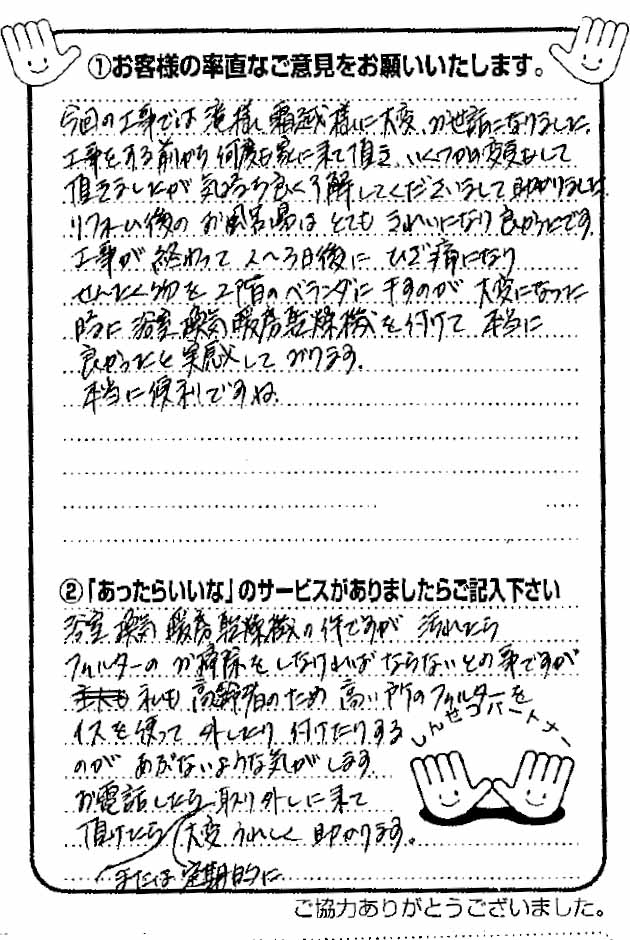 ①お客様の率直なご意見をお願いいたします。
今回の工事では滝様、鶴越様に大変お世話になりました。
工事をする前から何度も家に来て頂き、いくつかの変更もして
頂きましたが気持ち良く了解してくださいまして助かりました。
リフォーム後のお風呂場はとてもきれいになり良かったです。
工事が終わって2〜3日後にひざ痛になり
せんたく物を2階のベランダに干すのが大変になった
時に浴室換気暖房乾燥機を付けて本当に
良かったと実感しております。
本当に便利ですね。
②「あったらいいな」のサービスがありましたらご記入下さい
浴室換気暖房乾燥機の件ですが汚れたら
フィルターのお掃除をしなければならないとの事ですが
私も高齢者のため高い所のフィルターを
イスを使って外したり付けたりする
のがあぶないような気がします。
お電話したら取り外しに来て
頂けたら大変うれしく助かります。
または定期的に
しんせつパートナー
ご協力ありがとうございました。